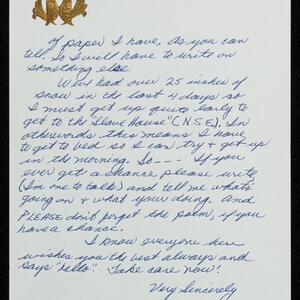 of paper I have, as you can
tell. So I will have to write on
something else.
We've had over 25 inches of
snow in the last 4 days so
I must get up quite early to
get to the "Slave House" (N.S.E.). In
otherwords this means I have
to get to bed so I can try + get up
in the morning. So--- If you
ever get a chance please write
(I'm one to talk) and tell me what's
going on + what your doing. And
PLEASE don't forget the poem, if you
have a chance.
I know everyone here
wishes you the best always and
says "hello". Take care now!
Very Sincerely